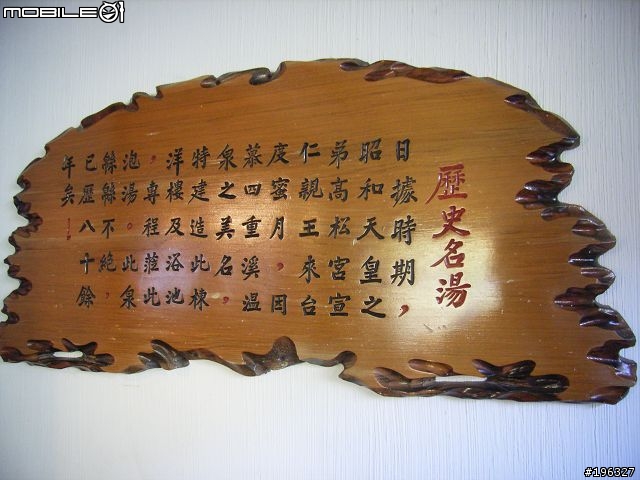 MOBILE01
歷史名湯
日據時期，
昭和天皇之
弟高松宮宣
仁親王來台
度蜜月，因
慕四重溪溫
泉之美名，
特建造此棟
洋樓及浴池
，專程蒞此
泡湯。此泉
絲絲不絕，
已歷八十餘
年矣！
#196327